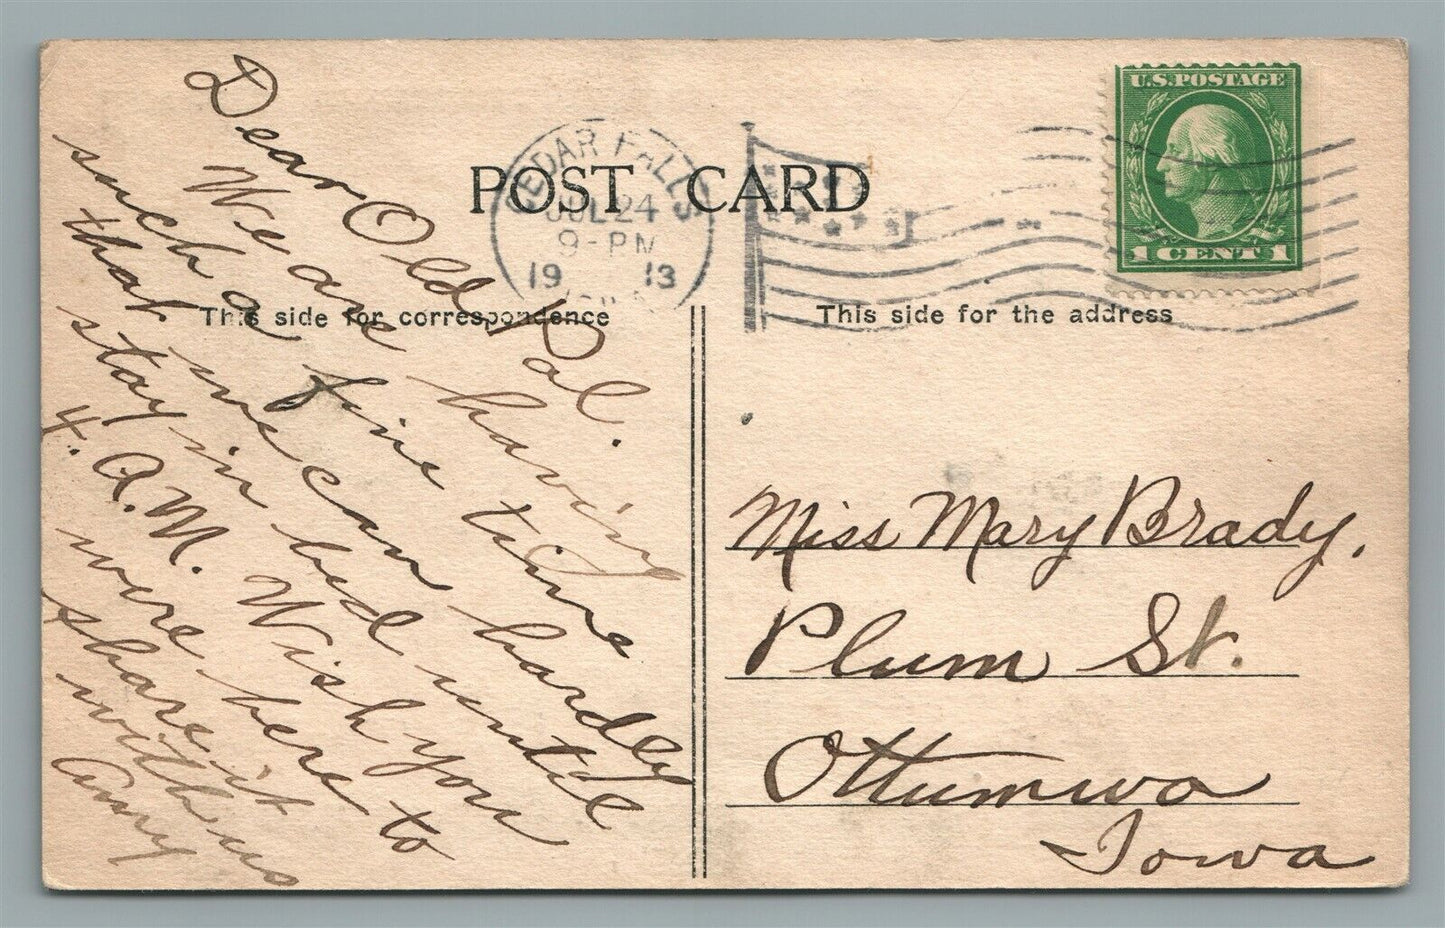 POST CARD
CEDAR FALLS
JUL 24
9-PM
1913
U.S. POSTAGE
1 CENT 1
This side for correspondence
This side for the address
Dear Old Pal.
We are having
such a fine time
that we can hardly
stay in bed until
4. A.M. Wish you
were here to
share it
with us
Amy
Miss Mary Brady,
Plum St.
Ottumwa
Iowa